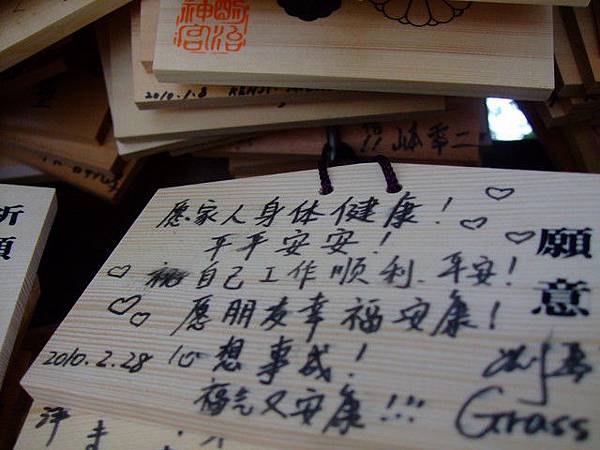 明治
神宮
2010.1.8
峰幸二
祈
願
願意
愿家人身体健康！
平平安安！
祝自己工作顺利、平安！
愿朋友幸福安康！
2010.2.28 心想事成！
福气又安康！！！
Grass